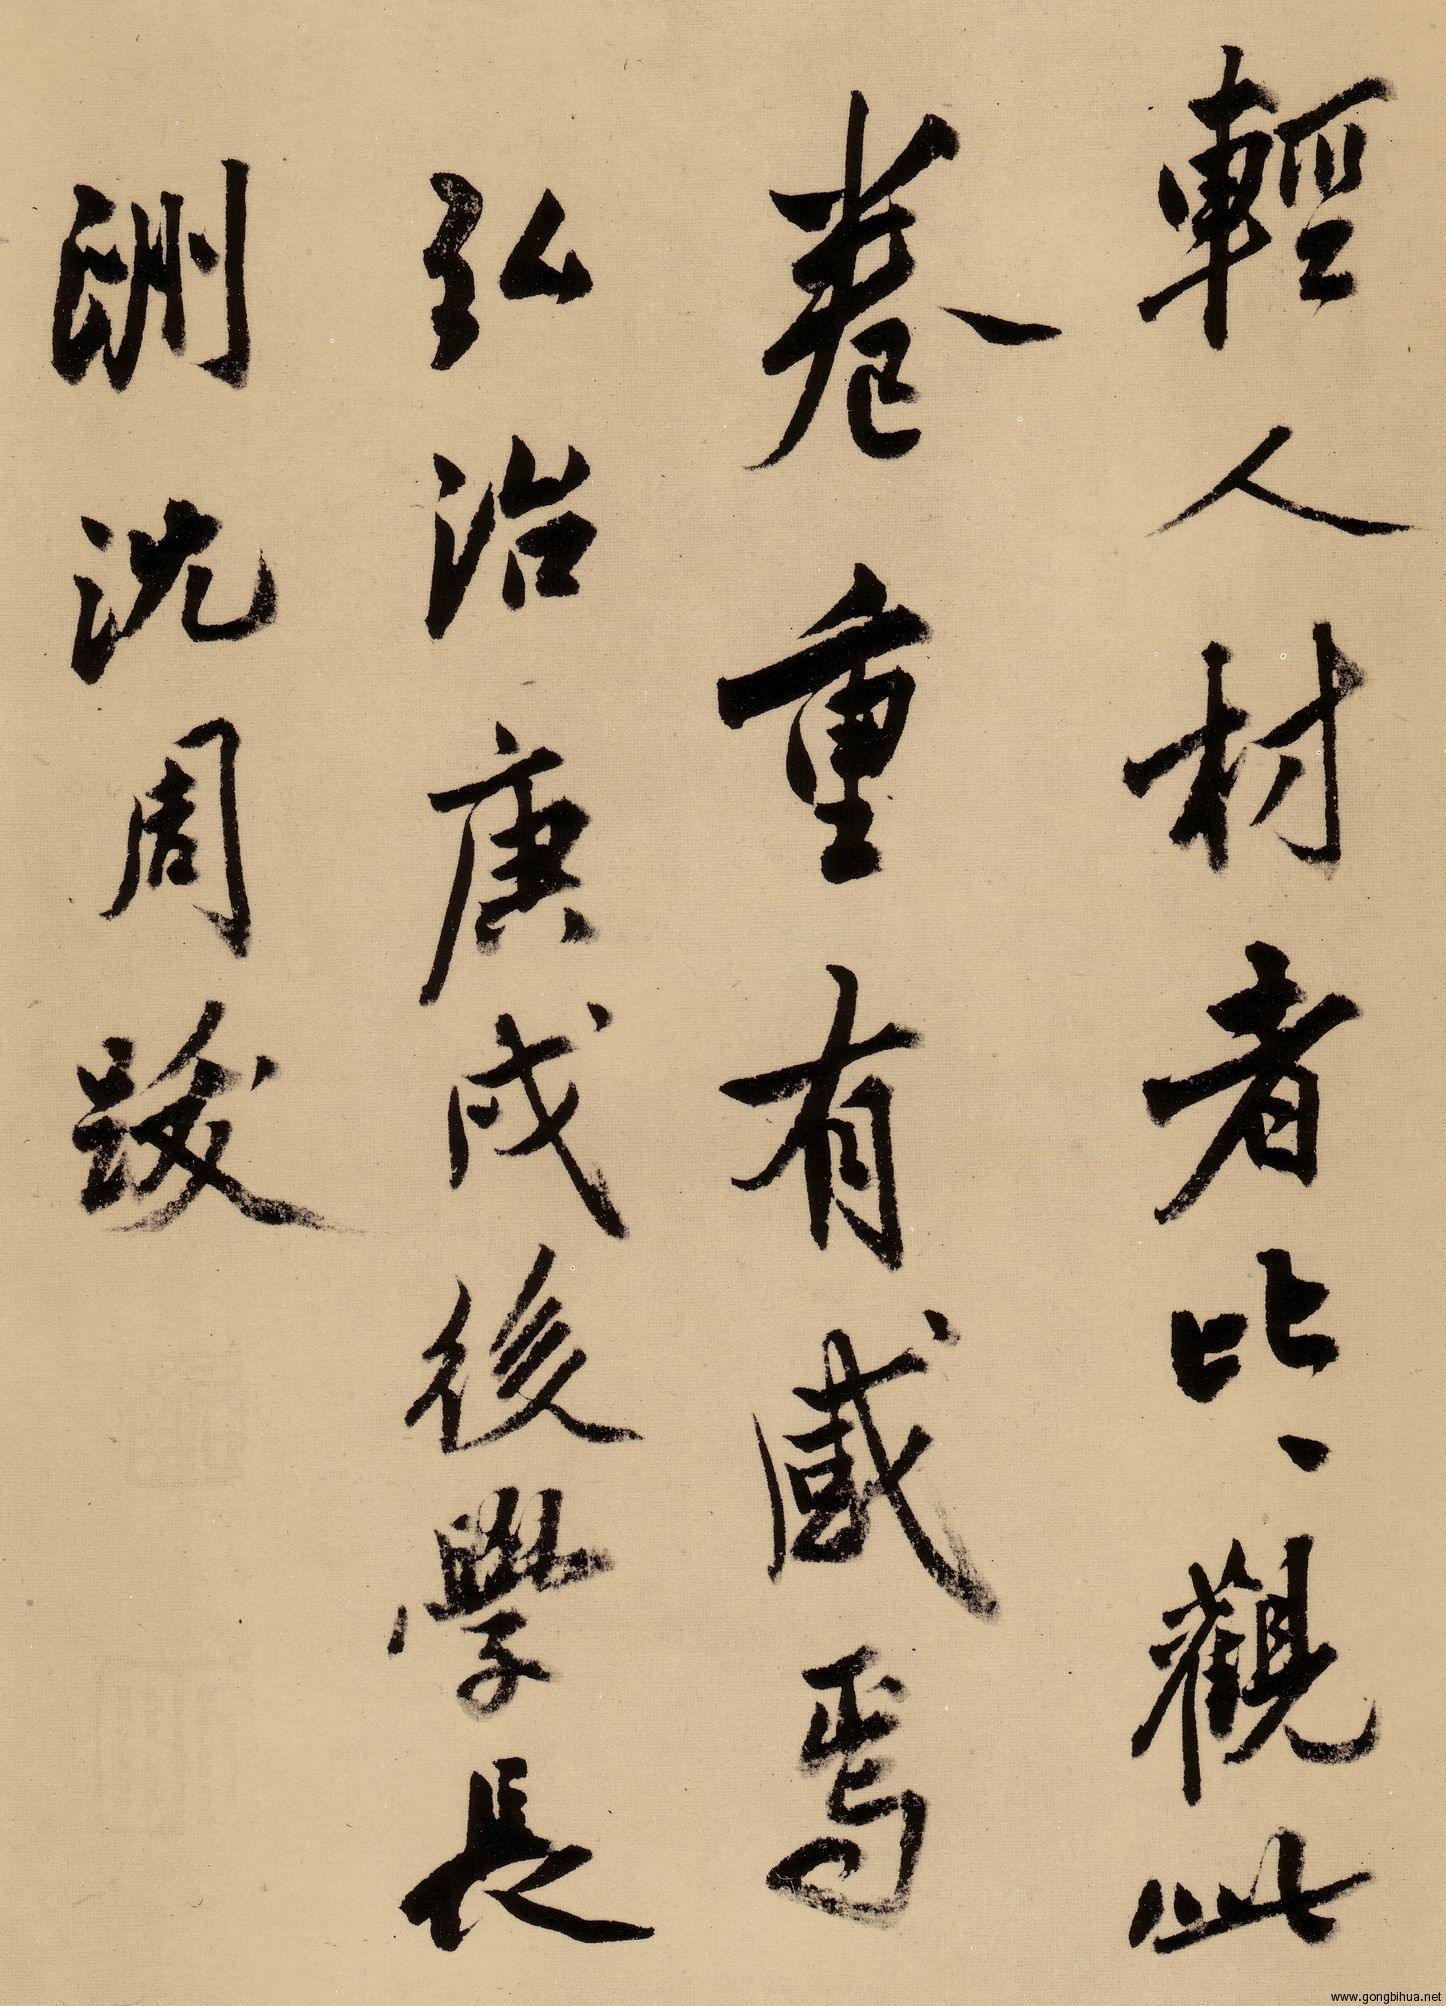 輕人材者比〻觀此
卷重有感焉
弘治庚戌後學長
洲沈周跋
www.gongbihua.net